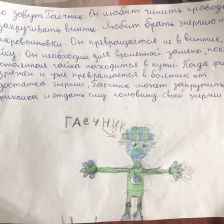 зовут Гаечник. Он любит чинить провода
закручивать винты. Любит брать энергию
микроволновки. Он превращается не в винтик,
йку. Он необходим для временной замены, пок
гайка находится в пути. Когда
и уже превращается в болтик от
энергии, Гаечник может закрутить
и отдать ему половину своей энергии
ГАЕЧНИК